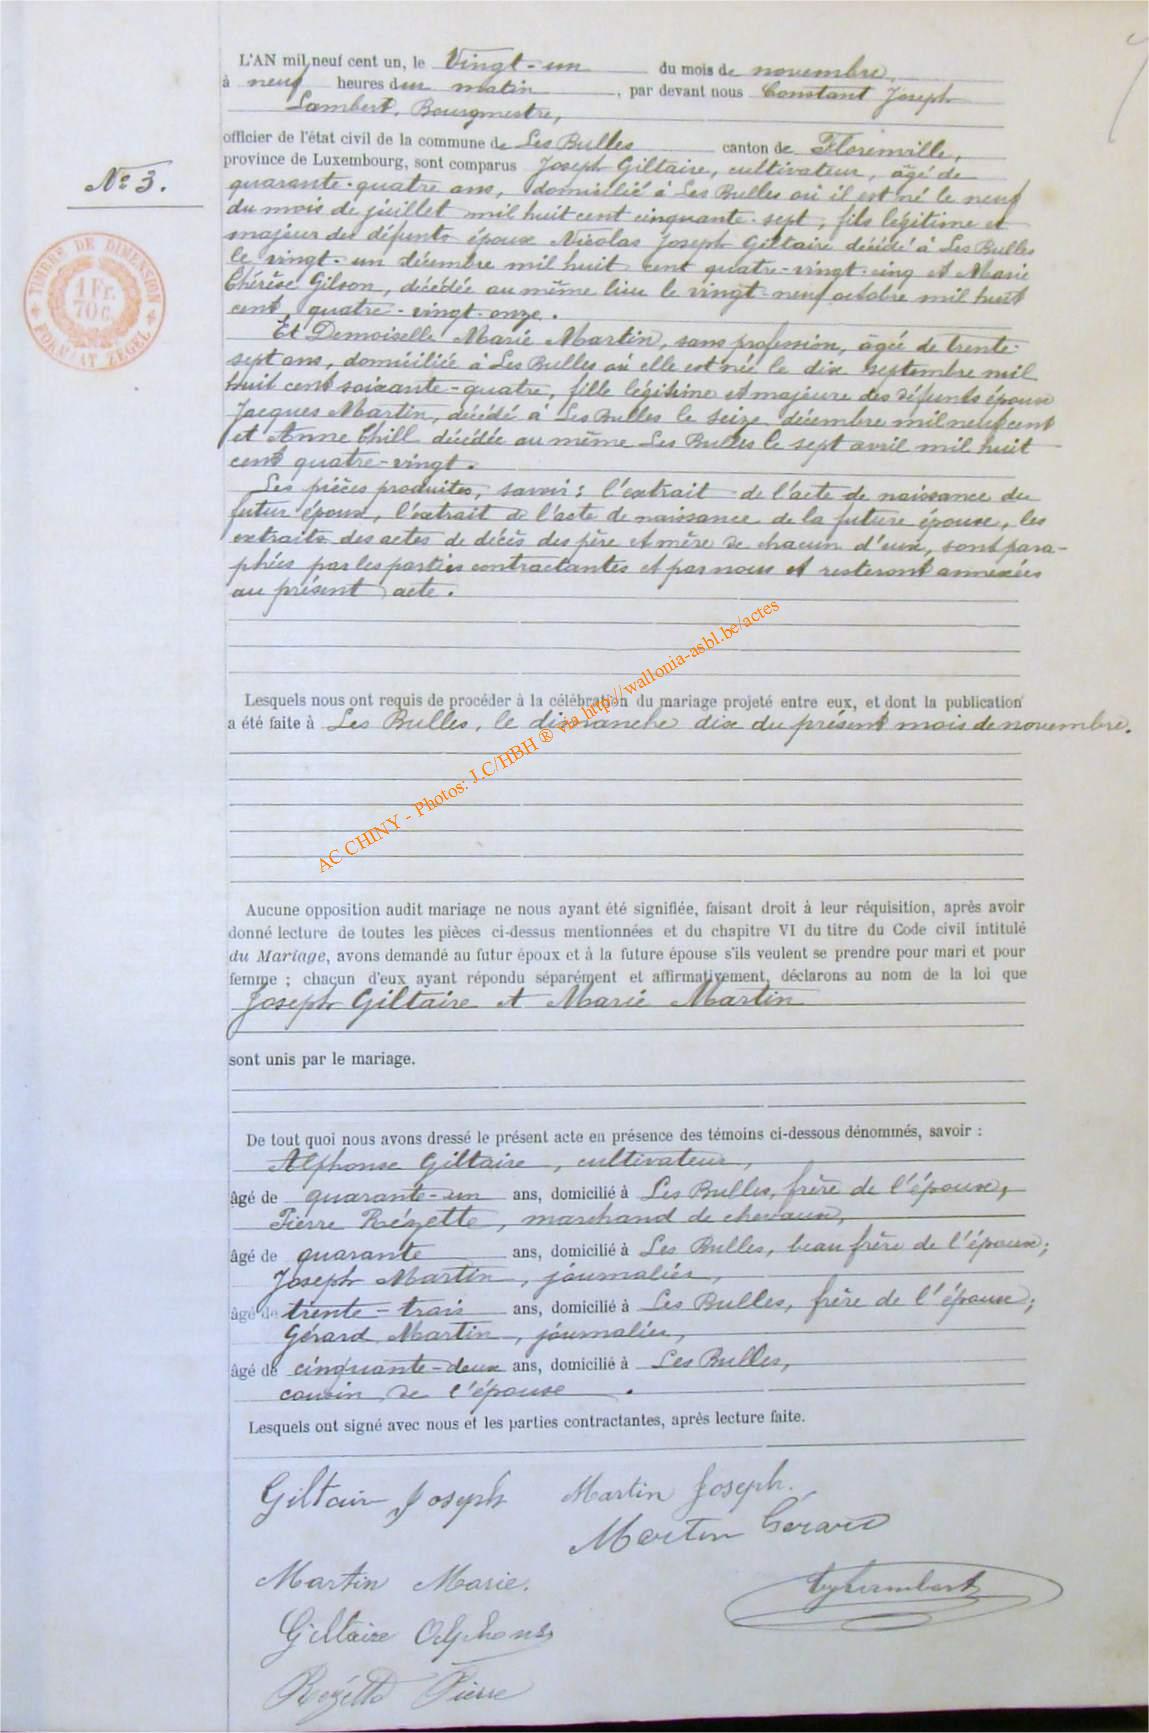 L'AN mil neuf cent un, le Vingt-un du mois de novembre,
à neuf heures du matin, par devant nous Constant Joseph
Lambert, Bourgmestre,
officier de l'état civil de la commune de Les Bulles canton de Florenville,
province de Luxembourg, sont comparus Joseph Giltaire, cultivateur, âgé de
quarante-quatre ans, domicilié à Les Bulles où il est né le neuf
du mois de juillet mil huit cent cinquante-sept, fils légitime et
majeur des défunts époux Nicolas Joseph Giltaire décédé à Les Bulles
le vingt-un décembre mil huit cent quatre-vingt-cinq et Marie
Thérèse Gilson, décédée au même lieu le vingt-neuf octobre mil huit
cent quatre-vingt-onze.
Et Demoiselle Marie Martin, sans profession, âgée de trente-
sept ans, domiciliée à Les Bulles où elle est née le dix septembre mil
huit cent soixante-quatre, fille légitime et majeure des défunts époux
Jacques Martin, décédé à Les Bulles le seize décembre mil neuf cent
et Anne Thill décédée au même Les Bulles le sept avril mil huit
cent quatre-vingt.
Les pièces produites, savoir: l'extrait de l'acte de naissance du
futur époux, l'extrait de l'acte de naissance de la future épouse, les
extraits des actes de décès des père et mère de chacun d'eux, sont para-
phées par les parties contractantes et par nous et resteront annexées
au présent acte.
N° 3.
TIMBRE DE DIMENSION
1 Fr.
70 c.
FORMAAT ZEGEL
Lesquels nous ont requis de procéder à la célébration du mariage projeté entre eux, et dont la publication
a été faite à Les Bulles, le dimanche dix du présent mois de novembre.
AC CHINY - Photos: J.C/HBH ® via http://wallonia-asbl.be/actes
Aucune opposition audit mariage ne nous ayant été signifiée, faisant droit à leur réquisition, après avoir
donné lecture de toutes les pièces ci-dessus mentionnées et du chapitre VI du titre du Code civil intitulé
du Mariage, avons demandé au futur époux et à la future épouse s'ils veulent se prendre pour mari et pour
femme ; chacun d'eux ayant répondu séparément et affirmativement, déclarons au nom de la loi que
Joseph Giltaire et Marie Martin
sont unis par le mariage.
De tout quoi nous avons dressé le présent acte en présence des témoins ci-dessous dénommés, savoir :
Alphonse Giltaire, cultivateur,
âgé de quarante-un ans, domicilié à Les Bulles, frère de l'époux,
Pierre Rézette, marchand de chevaux,
âgé de quarante ans, domicilié à Les Bulles, beau frère de l'époux;
Joseph Martin, journalier,
âgé de trente-trois ans, domicilié à Les Bulles, frère de l'épouse;
Gérard Martin, journalier,
âgé de cinquante-deux ans, domicilié à Les Bulles,
cousin de l'épouse.
Lesquels ont signé avec nous et les parties contractantes, après lecture faite.
Giltair Joseph Martin Joseph.
Martin Gérard
Martin Marie.
Lambert
Giltaire Alphons
Rezette Pierre